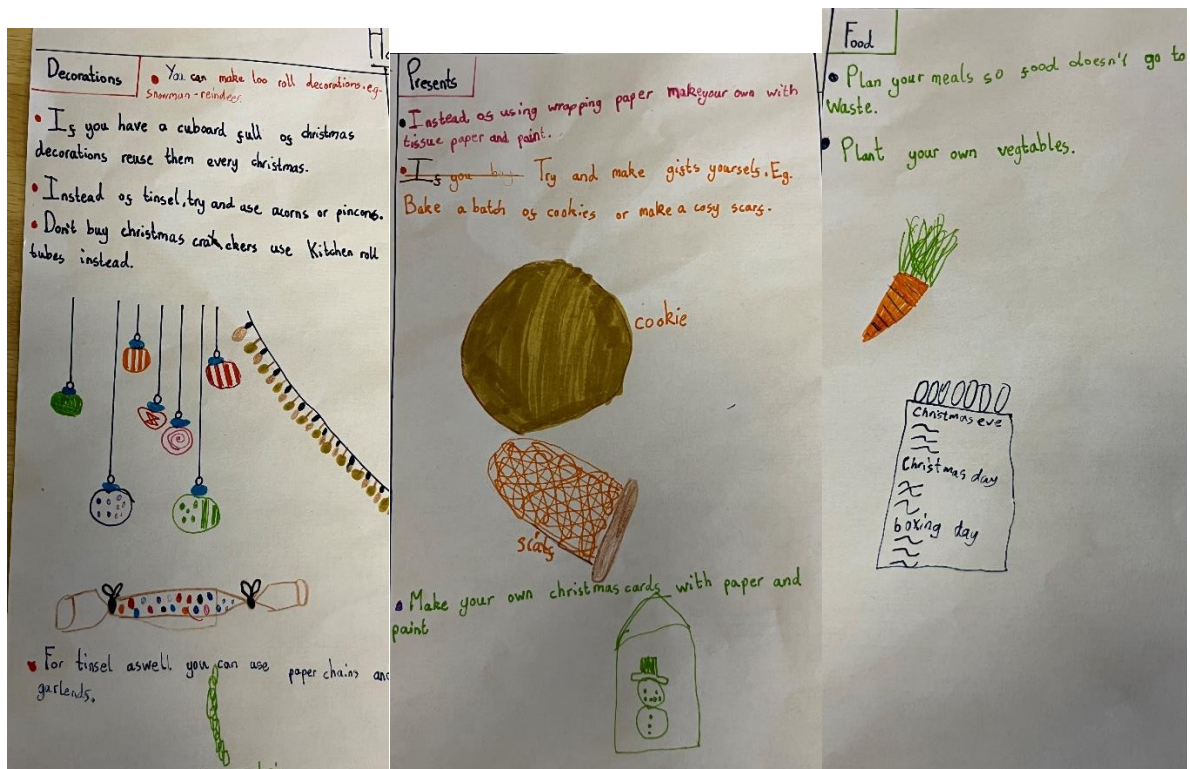 Decorations
• You can make loo roll decorations.eg-
Snowman-reindeer.
• If you have a cuboard full of christmas
decorations reuse them every christmas.
• Instead of tinsel, try and use acorns or pincons.
• Don't buy christmas crakckers use Kitchen roll
tubes instead.
• For tinsel aswell you can use paper chains and
garlends.
Presents
• Instead of using wrapping paper makeyour own with
tissue paper and paint.
• If you buy Try and make gifts yourself. Eg.
Bake a batch of cookies or make a cosy scarf.
cookie
scarf
• Make your own christmas cards with paper and
paint
Food
• Plan your meals so food doesn't go to
waste.
• Plant your own vegtables.
Christmas eve
Christmas day
boxing day